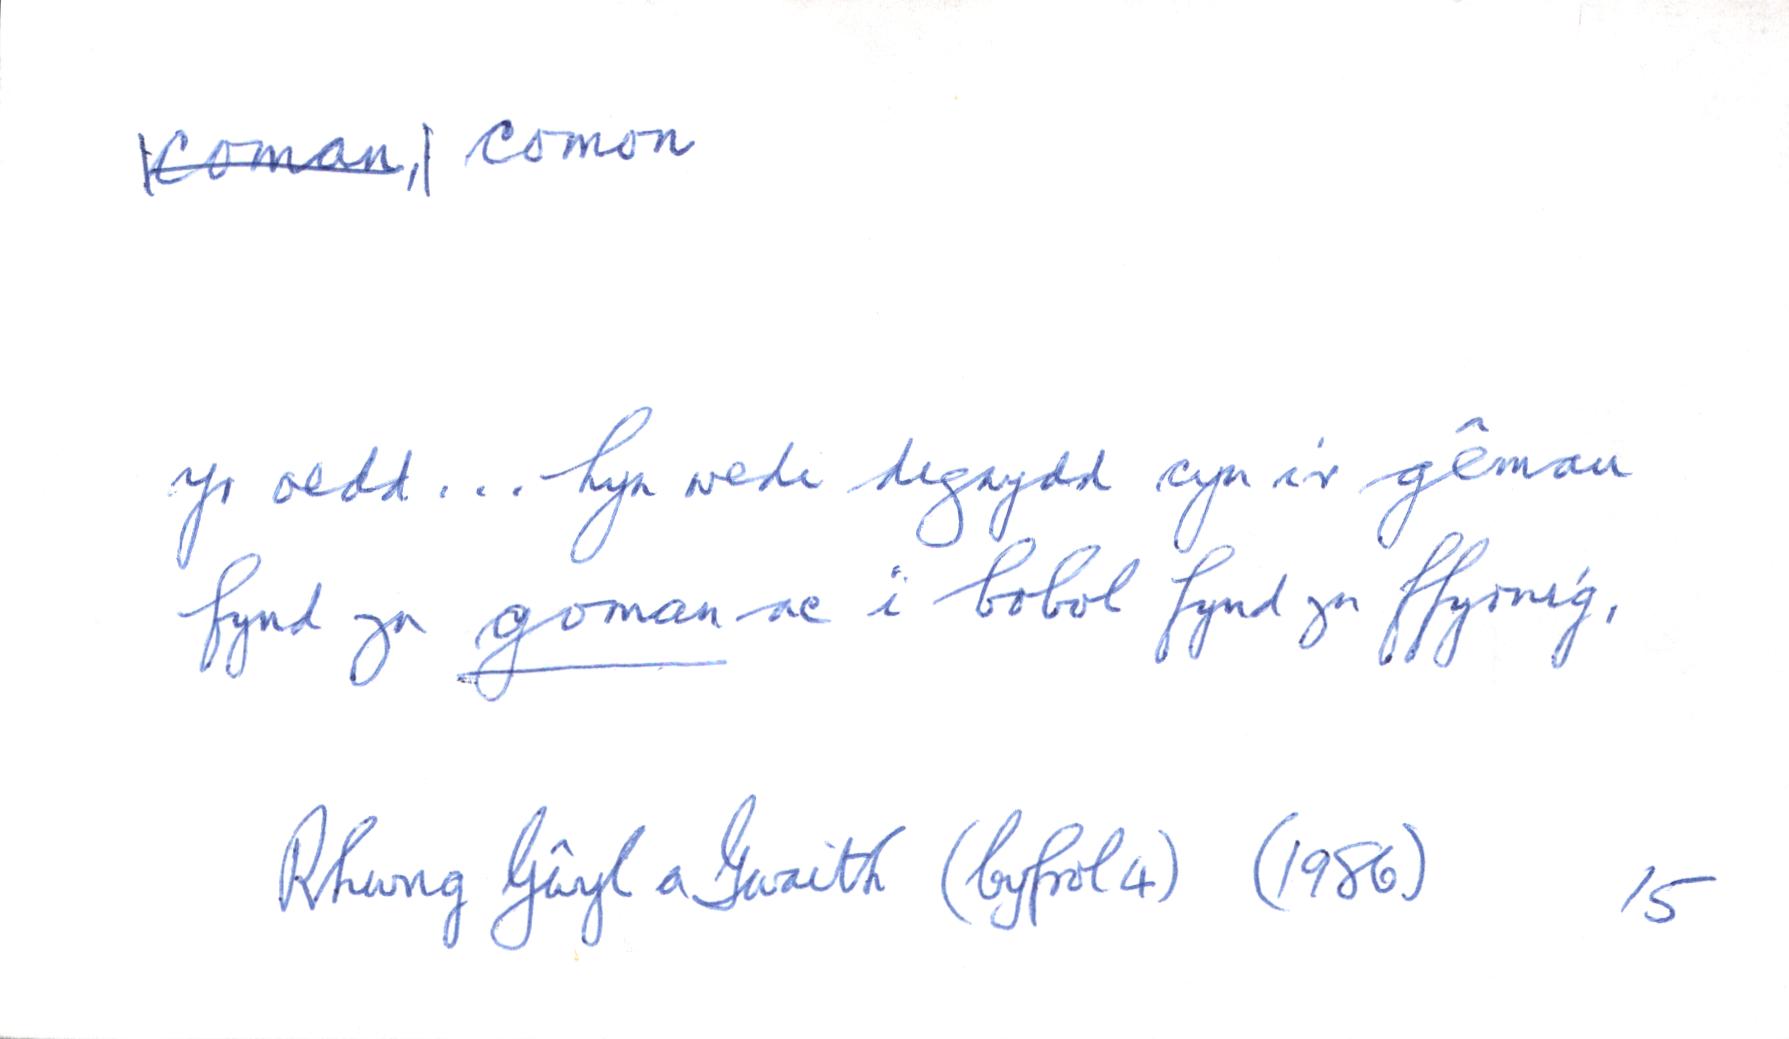 coman, comon
yr oedd... hyn wedi digwydd cyn i'r gêmau
fynd yn goman ac i bobol fynd yn ffyrnig,
Rhwng Gŵyl a Gwaith (cyfrol 4) (1986) 15